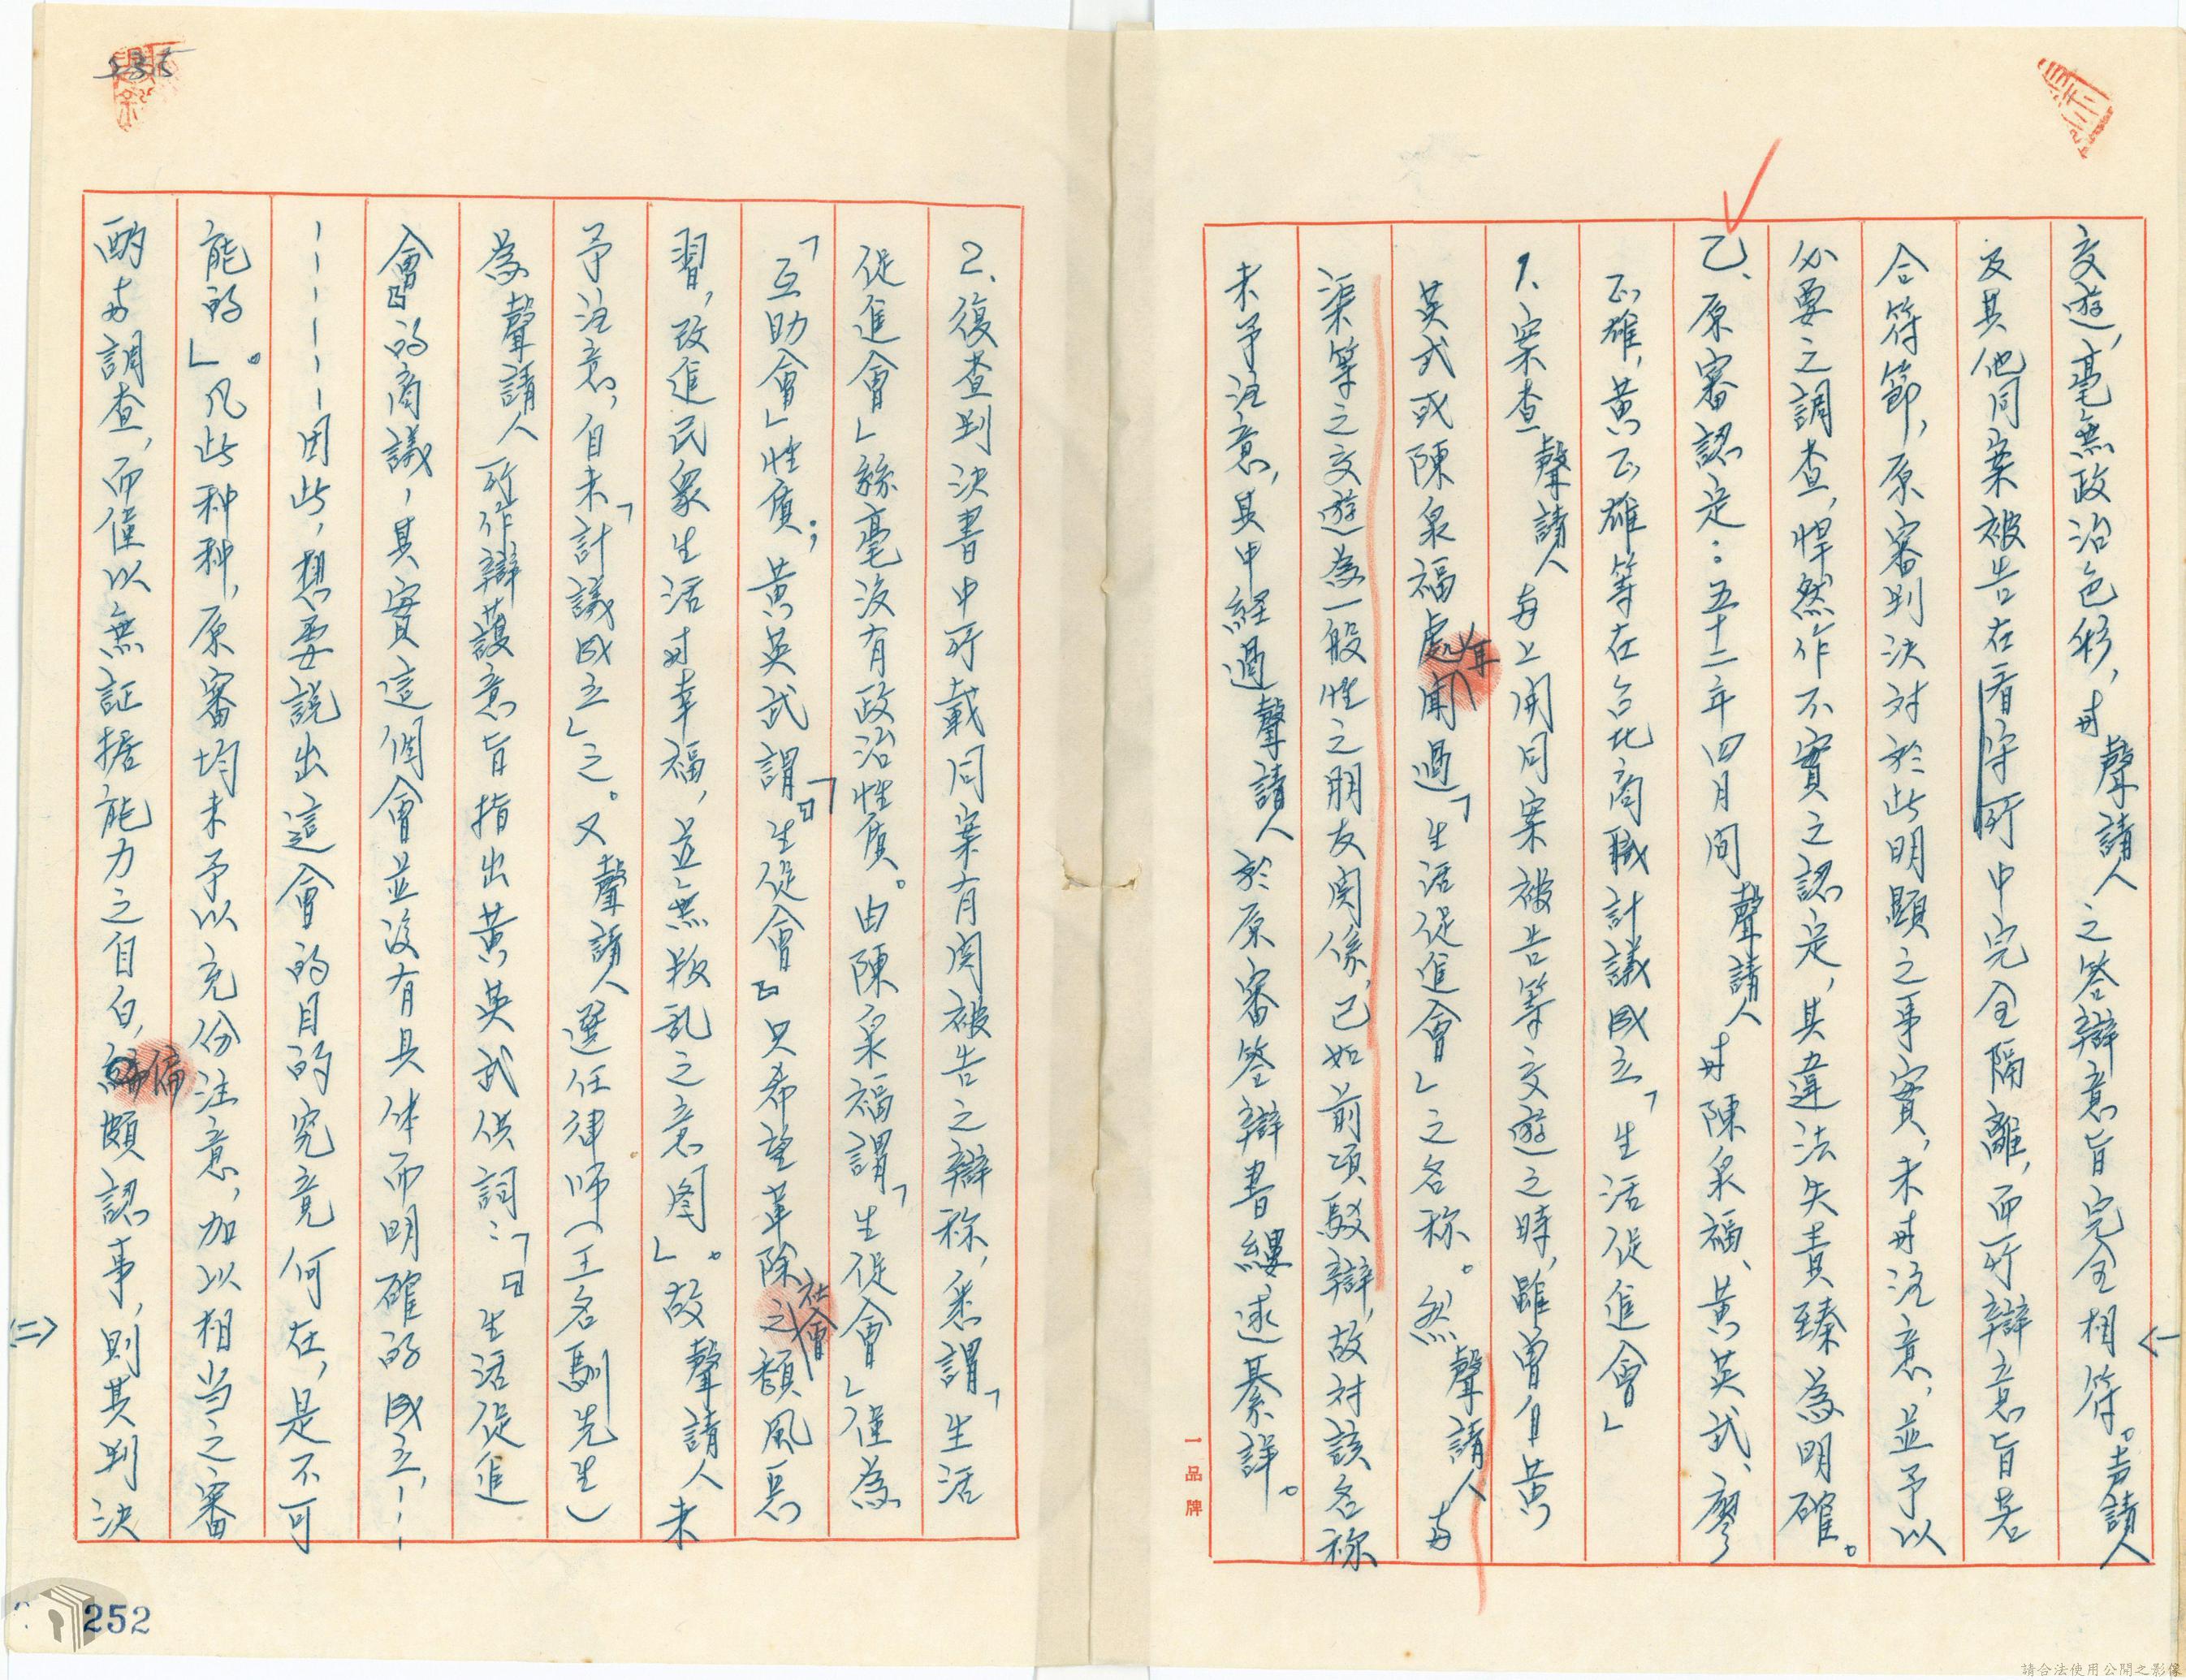 交遊，毫無政治色彩，对聲請人之答辯意旨完全相符。声請人
及其他同案被告在看守所中完全隔離，而所辯意旨若
合符節，原審判決对於此明顯之事實，未对注意，並予以
必要之調查，悍然作不實之認定，其違法失責臻為明確。
乙、原審認定：五十二年四月間聲請人对陳泉福、黃英武、廖
正雄，黃正雄等在台北商職計議成立「生活促進會」
1、案查聲請人与上開同案被告等交遊之時，雖曾自黃
英武或陳泉福處聞過「生活促進會」之名称。然聲請人与
渠等之交遊為一般性之朋友関係，已如前項駁辯，故对該名称
未予注意，其中経過聲請人於原審答辯書縷述綦詳。
2、復查判決書中所載同案有関被告之辯称，悉謂「生活
促進會」絲毫沒有政治性质。由陳泉福謂「生促會」僅為
「互助會」性质；黃英武謂「『生促會』只希望革除社會之頹風惡
習，改進民眾生活对幸福，並無叛乱之意图」。故聲請人未
予注意，自未「計議成立」之。又聲請人選任律师（王名馴先生）
為聲請人所作辯護意旨指出黃英武供詞：「『生活促進
會』的商議，其實這個會並沒有具体而明確的成立，----
------因此，想要說出這會的目的究竟何在，是不可
能的」。凡此种种，原審均未予以充份注意，加以相当之審
酌与調查，而僅以無証据能力之自白，偏頗認事，則其判決
一品牌
<二>
252
請合法使用公開之影像